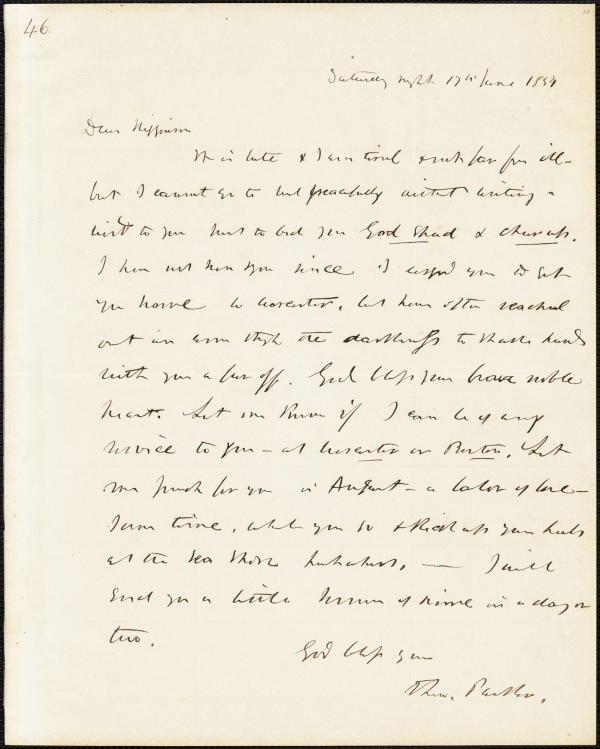 46
Saturday night 17th June 1854
Dear Higginson
It is late & I am tired & not far from ill—
but I cannot go to bed peacefully without writing a
word to you but to bid you God Speed & cheer up.
I have not seen you since I urged you to get
you home to Worcester, but have often reached
out an arm thro' the darkness to shake hands
with you afar off. God bless your brave noble
heart. Let me know if I can be of any
service to you — at Worcester or Boston. Let
me preach for you in August — a labor of love —
some time, while you go & kick up your heels
at the Sea Shore — I will
send you a little sermon of mine in a day or
two.
God bless you
Theo. Parker.